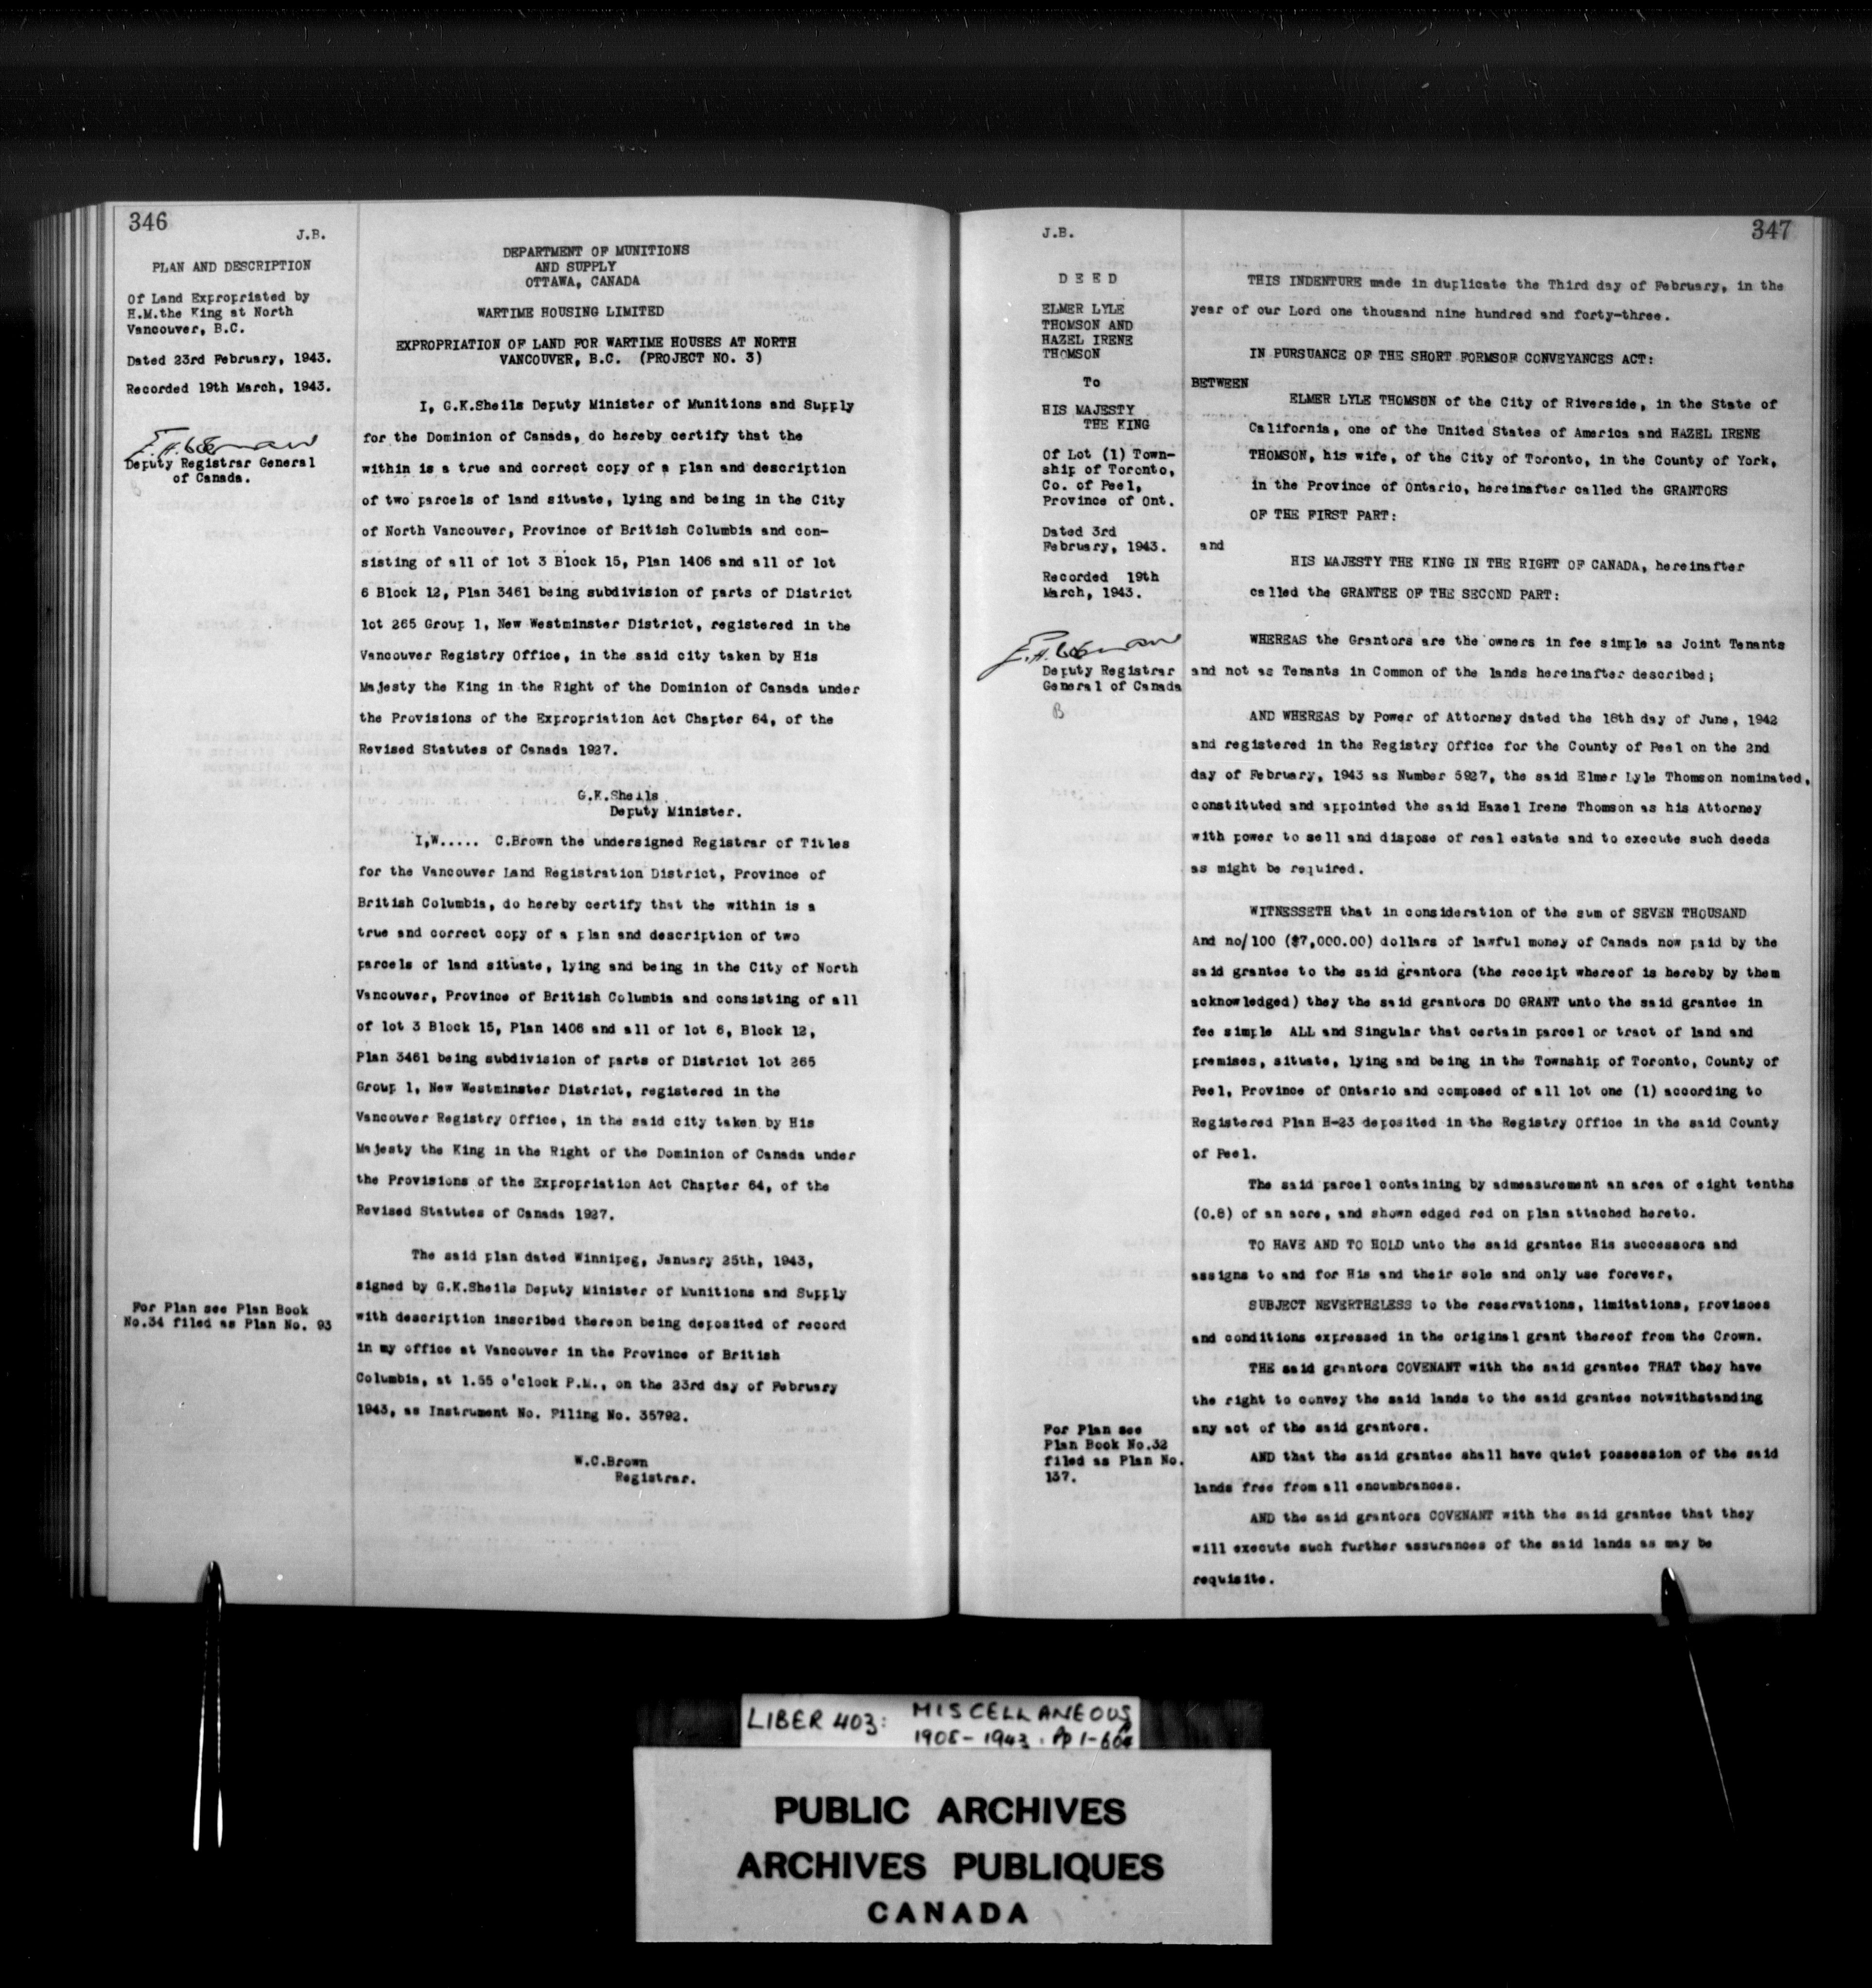 346
J.B.
PLAN AND DESCRIPTION
Of Land Expropriated by
H.M.the King at North
Vancouver, B.C.
Dated 23rd February, 1943.
Recorded 19th March, 1943.
Deputy Registrar General
of Canada.
For Plan see Plan Book
No.34 filed as Plan No. 93
DEPARTMENT OF MUNITIONS
AND SUPPLY
OTTAWA, CANADA
WARTIME HOUSING LIMITED
EXPROPRIATION OF LAND FOR WARTIME HOUSES AT NORTH
VANCOUVER, B.C. (PROJECT NO. 3)
I, G.K.Sheils Deputy Minister of Munitions and Supply
for the Dominion of Canada, do hereby certify that the
within is a true and correct copy of a plan and description
of two parcels of land situate, lying and being in the City
of North Vancouver, Province of British Columbia and con-
sisting of all of lot 3 Block 15, Plan 1406 and all of lot
6 Block 12, Plan 3461 being subdivision of parts of District
lot 265 Group 1, New Westminster District, registered in the
Vancouver Registry Office, in the said city taken by His
Majesty the King in the Right of the Dominion of Canada under
the Provisions of the Expropriation Act Chapter 64, of the
Revised Statutes of Canada 1927.
G.K.Sheils
Deputy Minister.
I,W..... C.Brown the undersigned Registrar of Titles
for the Vancouver Land Registration District, Province of
British Columbia, do hereby certify that the within is a
true and correct copy of a plan and description of two
parcels of land situate, lying and being in the City of North
Vancouver, Province of British Columbia and consisting of all
of lot 3 Block 15, Plan 1406 and all of lot 6, Block 12,
Plan 3461 being subdivision of parts of District lot 265
Group 1, New Westminster District, registered in the
Vancouver Registry Office, in the said city taken by His
Majesty the King in the Right of the Dominion of Canada under
the Provisions of the Expropriation Act Chapter 64, of the
Revised Statutes of Canada 1927.
The said plan dated Winnipeg, January 25th, 1943,
signed by G.K.Sheils Deputy Minister of Munitions and Supply
with description inscribed thereon being deposited of record
in my office at Vancouver in the Province of British
Columbia, at 1.55 o'clock P.M., on the 23rd day of February
1943, as Instrument No. Filing No. 35792.
W.C.Brown
Registrar.
347
J.B.
D E E D
ELMER LYLE
THOMSON AND
HAZEL IRENE
THOMSON
To
HIS MAJESTY
THE KING
Of Lot (1) Town-
ship of Toronto,
Co. of Peel,
Province of Ont.
Dated 3rd
February, 1943.
Recorded 19th
March, 1943.
Deputy Registrar
General of Canada
B
For Plan see
Plan Book No.32
filed as Plan No.
137.
THIS INDENTURE made in duplicate the Third day of February, in the
year of our Lord one thousand nine hundred and forty-three.
IN PURSUANCE OF THE SHORT FORMSOF CONVEYANCES ACT:
BETWEEN
ELMER LYLE THOMSON of the City of Riverside, in the State of
California, one of the United States of America and HAZEL IRENE
THOMSON, his wife, of the City of Toronto, in the County of York,
in the Province of Ontario, hereinafter called the GRANTORS
OF THE FIRST PART:
and
HIS MAJESTY THE KING IN THE RIGHT OF CANADA, hereinafter
called the GRANTEE OF THE SECOND PART:
WHEREAS the Grantors are the owners in fee simple as Joint Tenants
and not as Tenants in Common of the lands hereinafter described;
AND WHEREAS by Power of Attorney dated the 18th day of June, 1942
and registered in the Registry Office for the County of Peel on the 2nd
day of February, 1943 as Number 5927, the said Elmer Lyle Thomson nominated,
constituted and appointed the said Hazel Irene Thomson as his Attorney
with power to sell and dispose of real estate and to execute such deeds
as might be required.
WITNESSETH that in consideration of the sum of SEVEN THOUSAND
And no/100 ($7,000.00) dollars of lawful money of Canada now paid by the
said grantee to the said grantors (the receipt whereof is hereby by them
acknowledged) they the said grantors DO GRANT unto the said grantee in
fee simple ALL and Singular that certain parcel or tract of land and
premises, situate, lying and being in the Township of Toronto, County of
Peel, Province of Ontario and composed of all lot one (1) according to
Registered Plan H-23 deposited in the Registry Office in the said County
of Peel.
The said parcel containing by admeasurement an area of eight tenths
(0.8) of an acre, and shown edged red on plan attached hereto.
TO HAVE AND TO HOLD unto the said grantee His successors and
assigns to and for His and their sole and only use forever.
SUBJECT NEVERTHELESS to the reservations, limitations, provisoes
and conditions expressed in the original grant thereof from the Crown.
THE said grantors COVENANT with the said grantee THAT they have
the right to convey the said lands to the said grantee notwithstanding
any act of the said grantors.
AND that the said grantee shall have quiet possession of the said
lands free from all encumbrances.
AND the said grantors COVENANT with the said grantee that they
will execute such further assurances of the said lands as may be
requisite.
LIBER 403: MISCELLANEOUS
1908-1943. Pp 1-
PUBLIC ARCHIVES
ARCHIVES PUBLIQUES
CANADA